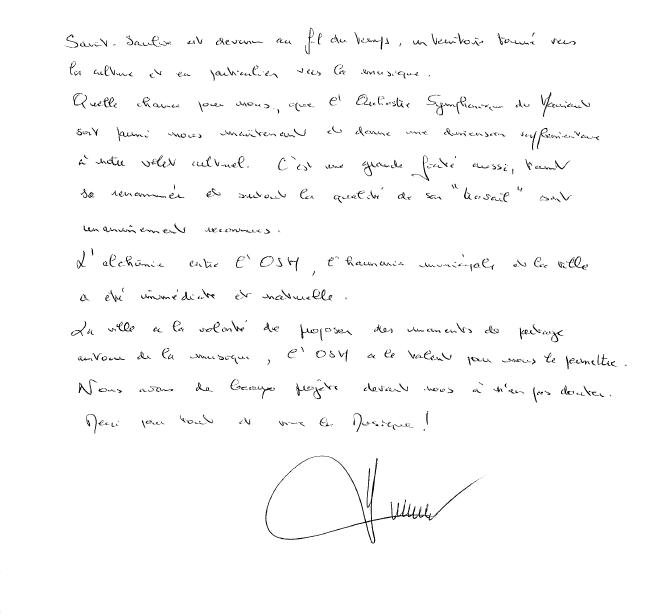 Saint-Saulve est devenu au fil du temps, un territoire tourné vers
la culture et en particulier vers la musique.
Quelle chance pour nous, que l'Orchestre Symphonique du Hainaut
soit parmi nous maintenant et donne une dimension supplémentaire
à notre volet culturel. C'est une grande fierté aussi, tant
sa renommée et surtout la qualité de son "travail" sont
unanimement reconnus.
L'alchimie entre l'OSH, l'harmonie municipale et la ville
a été immédiate et naturelle.
La ville a la volonté de proposer des moments de partage
autour de la musique, l'OSH a le talent pour nous le permettre.
Nous avons de beaux projets devant nous à n'en pas douter.
Merci pour tout et vive la Musique !